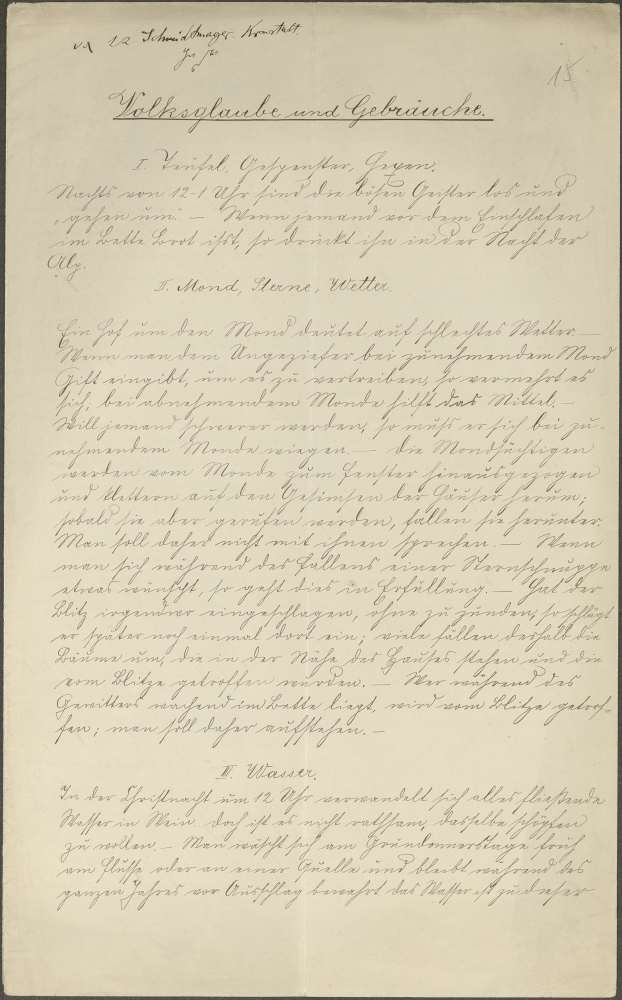 12 Schmidtmayer. Kronstadt.
15
Volksglaube und Gebräuche.
I. Teufel, Gespenster, Hexen.
Nachts von 12-1 Uhr sind die bösen Geister los und
gehen um. — Wenn jemand vor dem Einschlafen
im Bette Brot ißt, so drückt ihn in der Nacht der
Alp.
II. Mond, Sterne, Wetter.
Ein Hof um den Mond deutet auf schlechtes Wetter. —
Wenn man dem Ungeziefer bei zunehmendem Mond
Gift eingibt, um es zu vertreiben, so vermehrt es
sich; bei abnehmendem Monde hilft das Mittel. —
Will jemand schwerer werden, so muß er sich bei zu-
nehmendem Monde wiegen. — Die Mondsüchtigen
werden vom Monde zum Fenster hinausgezogen
und klettern auf den Gesimsen der Häuser herum;
sobald sie aber gerufen werden, fallen sie herunter.
Man soll daher nicht mit ihnen sprechen. — Wenn
man sich während des Fallens einer Sternschnuppe
etwas wünscht, so geht dies in Erfüllung. — Hat der
Blitz irgendwo eingeschlagen, ohne zu zünden, so schlägt
er später noch einmal dort ein; viele fällen deshalb die
Bäume um, die in der Nähe des Hauses stehen und die
vom Blitze getroffen wurden. — Wer während des
Gewitters wachend im Bette liegt, wird vom Blitze getrof-
fen; man soll daher aufstehen. —
III. Wasser.
In der Christnacht um 12 Uhr verwandelt sich alles fließende
Wasser in Wein doch ist es nicht rathsam, dasselbe schöpfen
zu wollen. — Man wäscht sich am Gründonnerstage früh
am Flusse oder an einer Quelle und bleibt während des
ganzen Jahres vor Ausschlag bewahrt das Wasser ist zu dieser